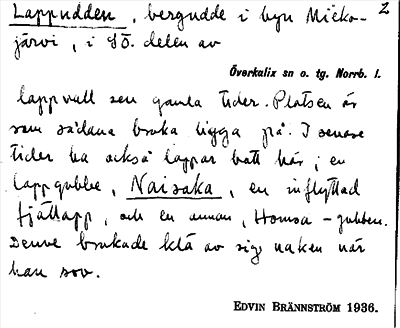 Lappudden, bergudde i byn Miekojärvi, i SÖ. delen av 2
Överkalix sn o. tg. Norrb. l.
lappvall sen gamla tider. Platsen är
som sådana bruka ligga på. I senare
tider ha också lappar bott här; en
lappgubbe, Naisaka, en inflyttad
fjällapp, och en annan, Homsa-gubben.
Denne brukade klä av sig naken när
han sov.
EDVIN BRÄNNSTRÖM 1936.